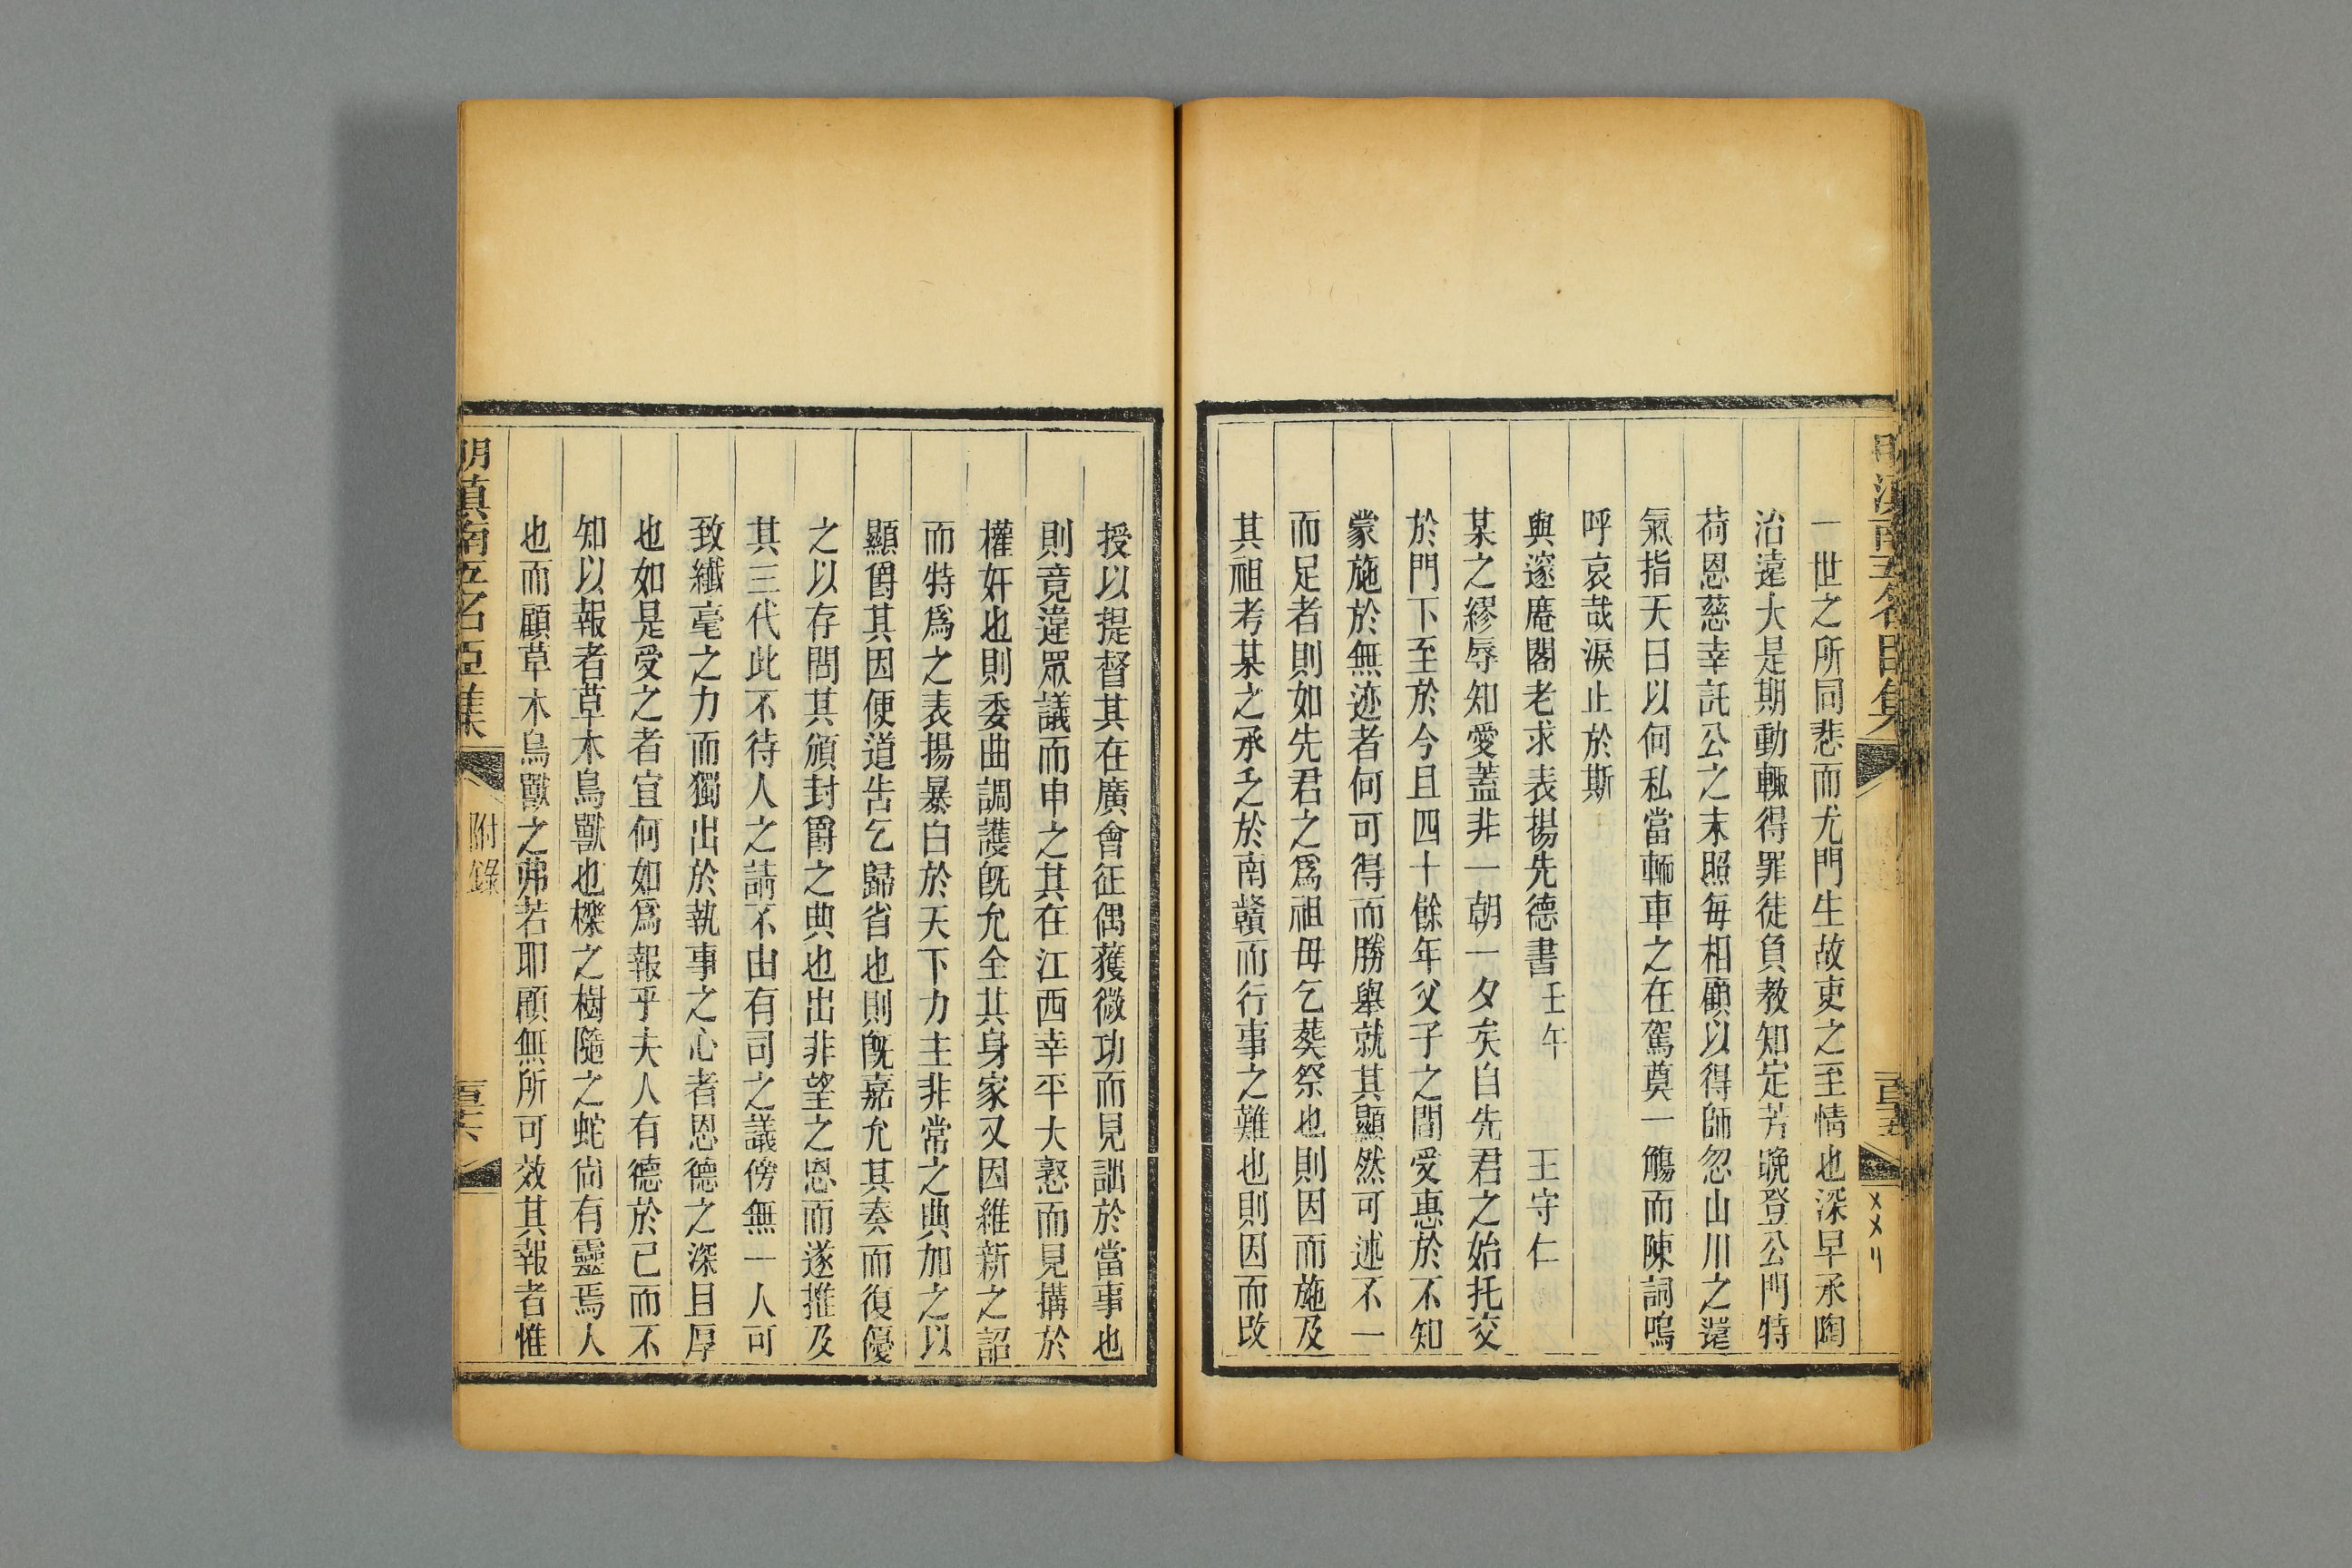 一世之所同悲而尤門生故吏之至情也深早承陶
冶遠大是期動輒得罪徒負教知定芳晩登公門特
荷恩慈幸託公之末照每相顧以得師忽山川之還
氣指天日以何私當輀車之在駕奠一觴而陳詞嗚
呼哀哉淚止於斯
與邃庵閣老求表揚先德書 壬午 王守仁
某之繆辱知愛蓋非一朝一夕矣自先君之始托交
於門下至於今且四十餘年父子之間受惠於不知
蒙施於無迹者何可得而勝舉就其顯然可述不一
而足者則如先君之爲祖母乞葬祭也則因而施及
其祖考某之承乏於南贛而行事之難也則因而改
授以提督其在廣會征偶獲微功而見詘於當事也
則竟違眾議而申之其在江西幸平大憝而見搆於
權奸也則委曲調護旣允全其身家又因維新之詔
而特爲之表揚暴白於天下力主非常之典加之以
顯爵其因便道告乞歸省也則旣嘉允其奏而復優
之以存問其頒封爵之典也出非望之恩而遂推及
其三代此不待人之請不由有司之議傍無一人可
致纖毫之力而獨出於執事之心者恩德之深且厚
也如是受之者宜何如爲報乎夫人有德於己而不
知以報者草木鳥獸也櫟之樹隨之蛇尙有靈焉人
也而顧草木鳥獸之弗若耶顧無所可效其報者惟
明滇南五名臣集
附錄